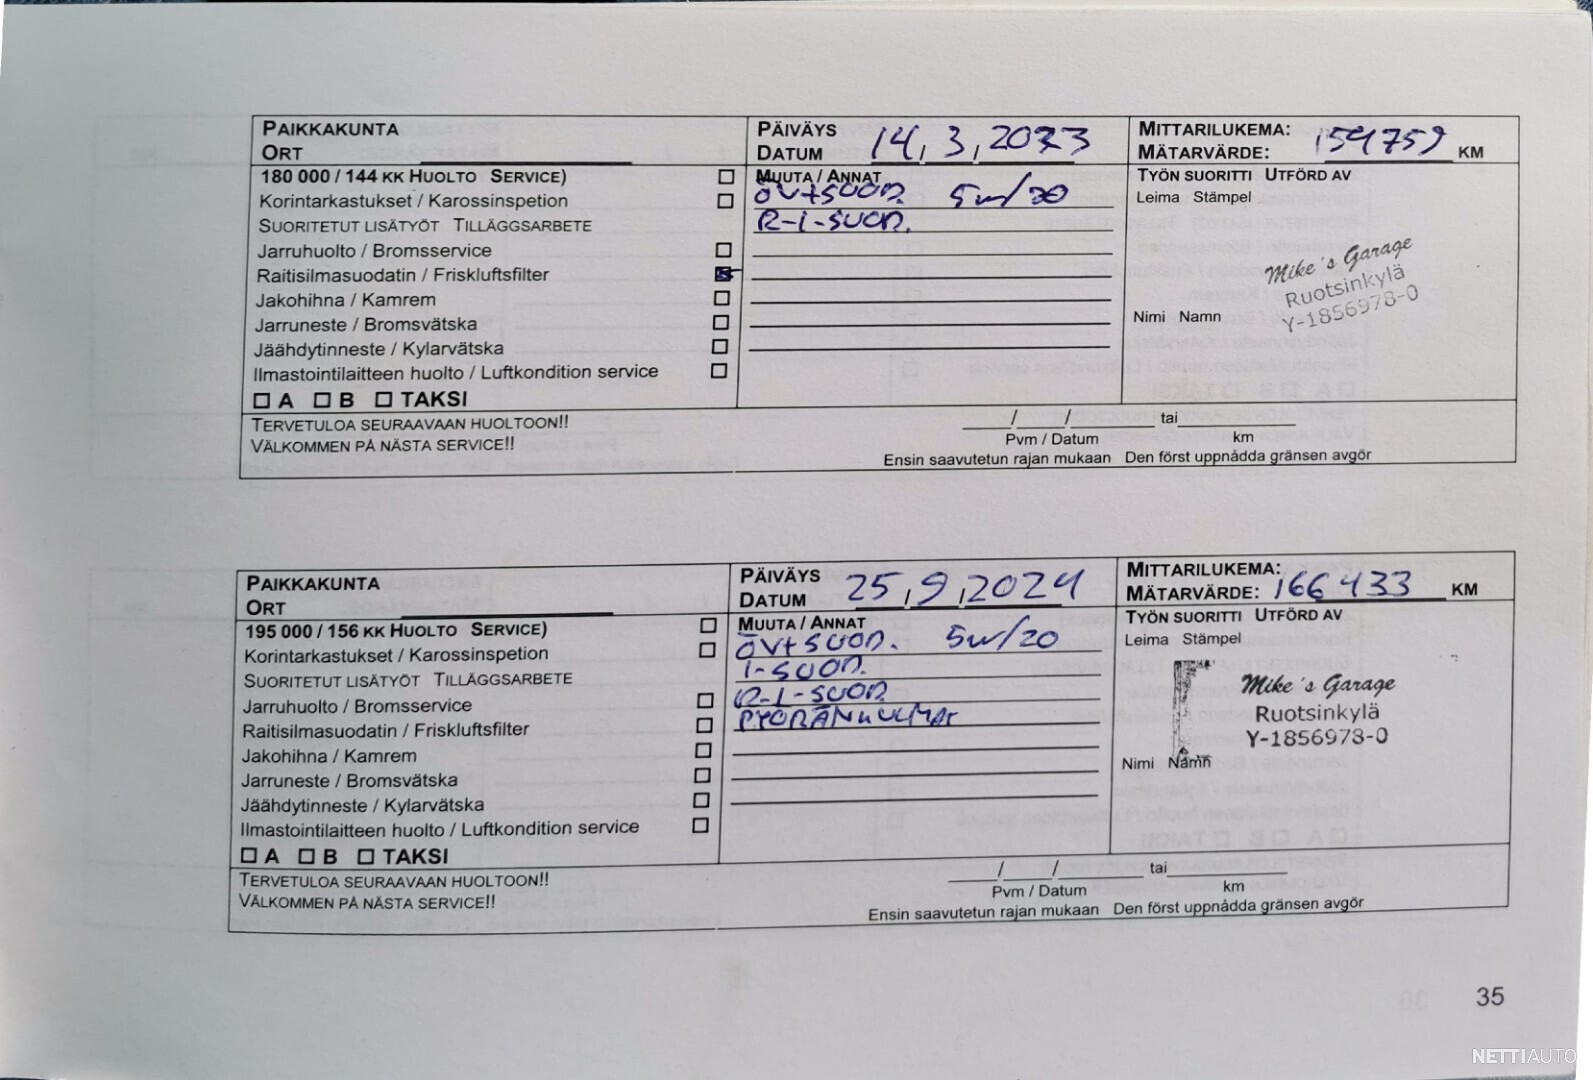 PAIKKAKUNTA
ORT
PÄIVÄYS
DATUM 14, 3, 2023
MITTARILUKEMA:
MÄTARVÄRDE: 154759 KM
180 000 / 144 KK HUOLTO SERVICE)
MUUTA / ANNAT
TYÖN SUORITTI UTFÖRD AV
Korintarkastukset / Karossinspetion
ÖV+SUOD. 5W/20
Leima Stämpel
SUORITETUT LISÄTYÖT TILLÄGGSARBETE
R-I-SUOD.
Jarruhuolto / Bromsservice
Raitisilmasuodatin / Friskluftsfilter
Mike's Garage
Ruotsinkylä
Y-1856978-0
Jakohihna / Kamrem
Jarruneste / Bromsvätska
Nimi Namn
Jäähdytinneste / Kylarvätska
Ilmastointilaitteen huolto / Luftkondition service
A B TAKSI
TERVETULOA SEURAAVAAN HUOLTOON!!
VÄLKOMMEN PÅ NÄSTA SERVICE!!
/ / tai
Pvm / Datum km
Ensin saavutetun rajan mukaan Den först uppnådda gränsen avgör
PAIKKAKUNTA
ORT
PÄIVÄYS
DATUM 25, 9, 2024
MITTARILUKEMA:
MÄTARVÄRDE: 166433 KM
195 000 / 156 KK HUOLTO SERVICE)
MUUTA / ANNAT
TYÖN SUORITTI UTFÖRD AV
Korintarkastukset / Karossinspetion
ÖV+SUOD. 5W/20
Leima Stämpel
SUORITETUT LISÄTYÖT TILLÄGGSARBETE
I-SUOD.
Jarruhuolto / Bromsservice
R-I-SUOD.
Raitisilmasuodatin / Friskluftsfilter
PYÖRÄNKULMAT
Mike's Garage
Ruotsinkylä
Y-1856978-0
Jakohihna / Kamrem
Nimi Namn
Jarruneste / Bromsvätska
Jäähdytinneste / Kylarvätska
Ilmastointilaitteen huolto / Luftkondition service
A B TAKSI
TERVETULOA SEURAAVAAN HUOLTOON!!
VÄLKOMMEN PÅ NÄSTA SERVICE!!
/ / tai
Pvm / Datum km
Ensin saavutetun rajan mukaan Den först uppnådda gränsen avgör
35
NETTIAUTO